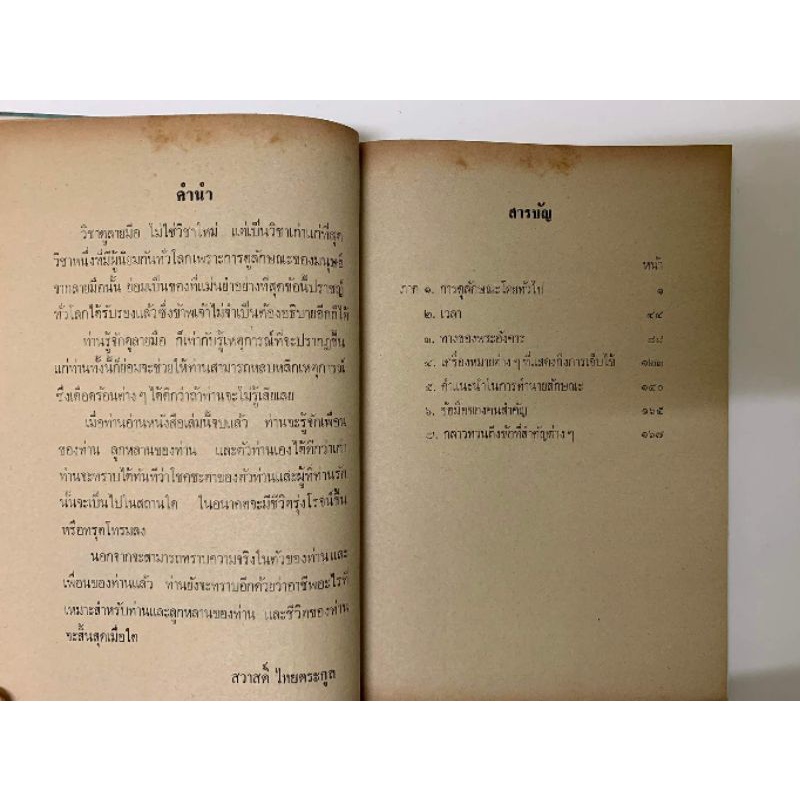 คำนำ
วิชาดูลายมือ ไม่ใช่วิชาใหม่ แต่เป็นวิชาเก่าแก่ที่สุด
วิชาหนึ่งที่มีผู้นิยมกันทั่วโลกเพราะการดูลักษณะของมนุษย์
จากลายมือนั้น ย่อมเป็นของที่แม่นยำอย่างที่สุดข้อนี้ปราชญ์
ทั่วโลกได้รับรองแล้ว ซึ่งข้าพเจ้าไม่จำเป็นต้องอธิบายอีกก็ได้
ท่านรู้จักดูลายมือ ก็เท่ากับรู้เหตุการณ์ที่จะปรากฏขึ้น
แก่ท่านทั้งนี้ก็ย่อมจะช่วยให้ท่านสามารถหลบหลีกเหตุการณ์
ซึ่งเดือดร้อนต่าง ๆ ได้ดีกว่าถ้าท่านจะไม่รู้เสียเลย
เมื่อท่านอ่านหนังสือเล่มนี้จบแล้ว ท่านจะรู้จักเพื่อน
ของท่าน ลูกหลานของท่าน และตัวท่านเองได้ดีกว่าเก่า
ท่านจะทราบได้ทันทีว่าโชคชะตาของตัวท่านและผู้ที่ท่านรัก
นั้นจะเป็นไปในสถานใด ในอนาคตจะมีชีวิตรุ่งโรจน์ขึ้น
หรือทรุดโทรมลง
นอกจากจะสามารถทราบความจริงในตัวของท่านและ
เพื่อนของท่านแล้ว ท่านยังจะทราบอีกด้วยว่าอาชีพอะไรที่
เหมาะสำหรับท่านและลูกหลานของท่าน และชีวิตของท่าน
จะสิ้นสุดเมื่อใด
สวาสดิ์ ไทยตระกูล
สารบัญ
หน้า
ภาค ๑. การดูลักษณะโดยทั่วไป ๑
๒. เวลา ๔๕
๓. ทางของพระอังคาร ๘๘
๔. เครื่องหมายต่าง ๆ ที่แสดงถึงการเจ็บไข้ ๑๒๒
๕. คำแนะนำในการทำนายลักษณะ ๑๔๐
๖. ข้อมือของคนสำคัญ ๑๖๕
๗. กล่าวทวนถึงข้อที่สำคัญต่าง ๆ ๑๖๗